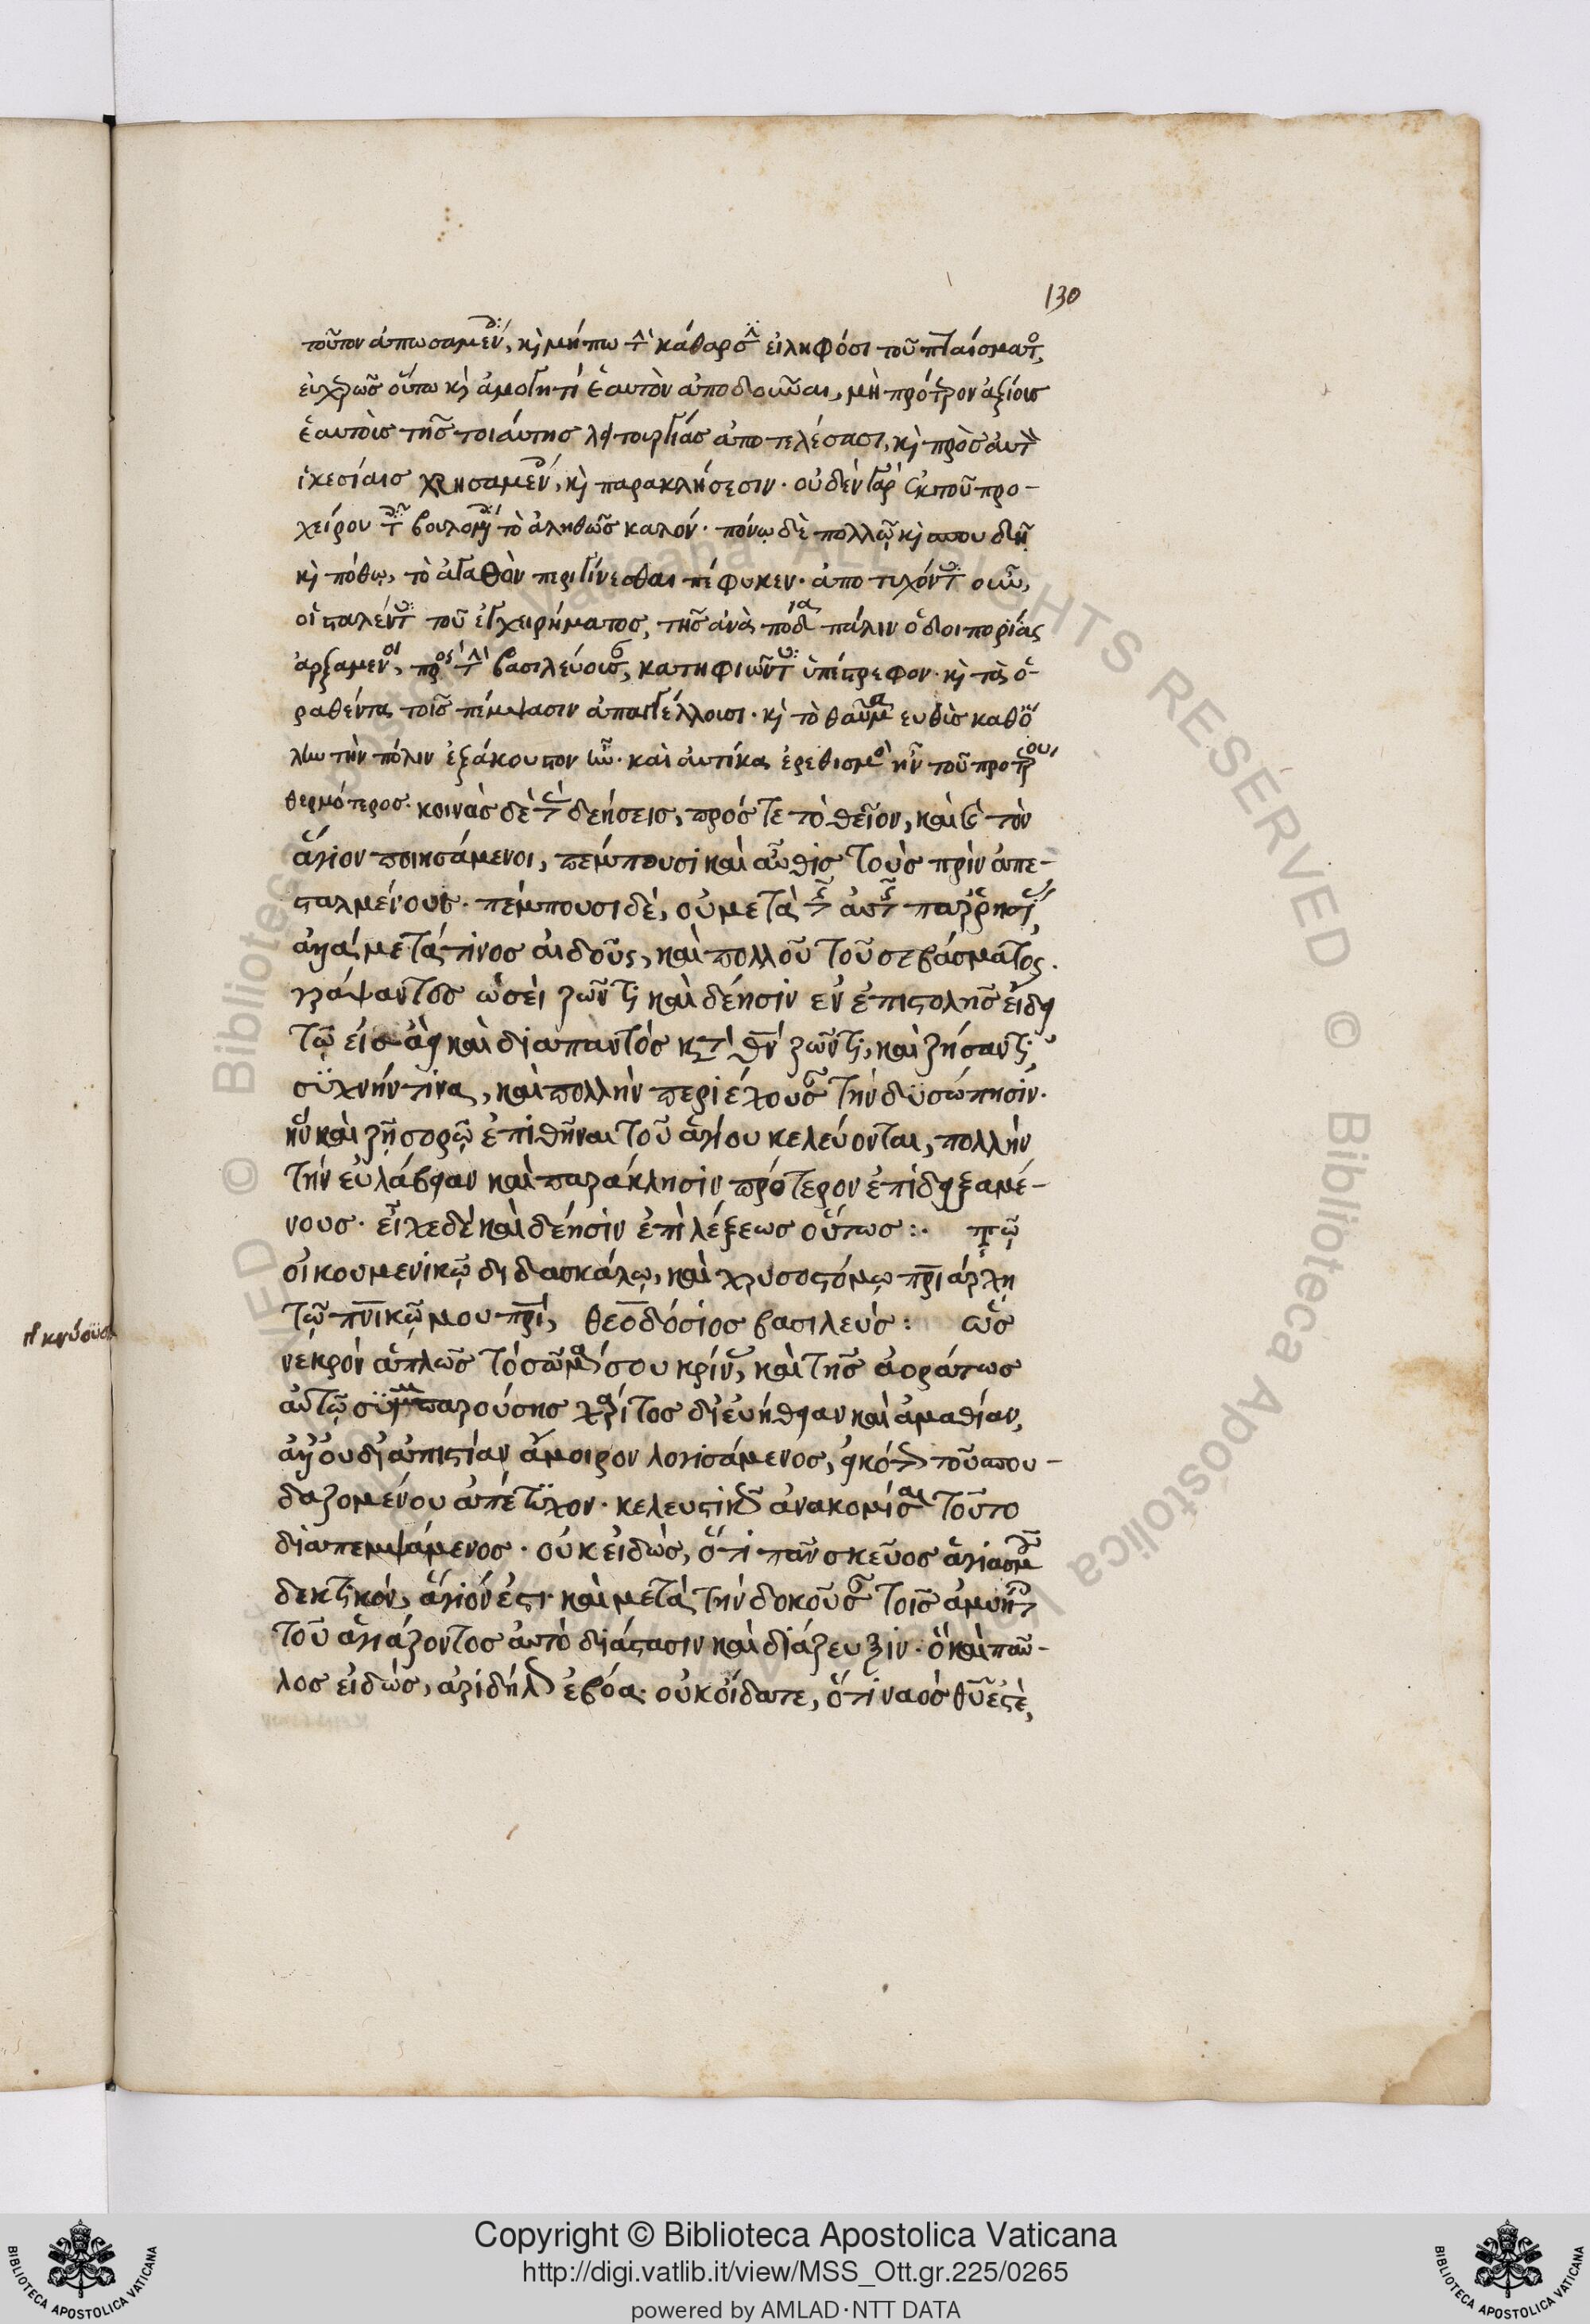 130
τοῦτον ἀπωσαμέν, κ μήπω τ κάθαρσ εἰληφόσι τοῦ πταίσματ,
εὐχερῶς οὕτω κ ἀμογητὶ ἑαυτὸν ἀποδοῦναι, μὴ πρότερον ἀξίοις
ἑαυτοῖς τῆς τοιάυτης λειτουργίας ἀποτελέσασι, κ πρὸς αὐτ
ἱκεσίαις χρησαμέν, κ παρακλήσεσιν. οὐδὲν γὰρ ἐκ τοῦ προ-
χείρου τ βουλομ τὸ ἀληθῶς καλόν. πόνῳ δὲ πολλῷ κ σπουδῇ
κ πόθῳ, τὸ ἀγαθὸν περιγίνεσθαι πέφυκεν. ἀποτυχόντ οὖν,
οἱ σταλέντ τοῦ ἐγχειρήματος, τῆς ἀνὰ πόδ πάλιν ὁδοιπορίας
ἀρξαμενοι, προς τ βασιλεύουσ, κατηφιῶντ ὑπέστρεφον. κ τὰ ὁ-
ραθέντα τοῖς πέμψασιν ἀπαγγέλλουσι. κ τὸ θαῦμα ευθὺς καθ' ὅ
λην τὴν πόλιν ἐξάκουστον ἦν. καὶ αὐτίκα ἐρεθισμὸ ἦν τοῦ προτρου
θερμότερος. κοινὰς δὲ τ δεήσεις, πρός τε τὸ θεῖον, καὶ ἐ τὸν
ἅγιον ποιησάμενοι, πέμπουσι καὶ αὖθις τοὺς πρὶν ἀπε-
σταλμένους. πέμπουσι δὲ, οὐ μετὰ τ αὐτ παρρησί,
ἀλλὰ μετά τινος αἰδοῦς, καὶ πολλοῦ τοῦ σεβάσματος.
γράψαντος ὡσεὶ ζῶντι καὶ δέησιν ἐν ἐπιστολῆς εἴδει
τῷ εἰσαὰει καὶ διαπαντός κτ θν ζῶντι, καὶ ζήσαντι
συχνήν τινα, καὶ πολλὴν περιέχουσ τὴν δυσώπησιν.
ἣν καὶ τῇ σορῷ ἐπιθῆναι τοῦ ἁγίου κελεύονται, πολλὴν
τὴν εὐλάβειαν καὶ παράκλησιν πρότερον ἐπιδειξαμέ-
νους. εἶχε δὲ καὶ δέησιν ἐπὶ λέξεως οὕτως :. τῷ
οἰκουμενικῷ διδασκάλῳ, καὶ χρυσοστόμῳ πριάρχῃ
τῷ πνικῷ μου πρί, θεοδόσιος βασιλεύς : ὡς
νεκρὸν ἁπλῶς τὸ σῶμά σου κρίν, καὶ τῆς ἀοράτως
αὐτῷ συμπαρούσης χάριτος δι' εὐήθειαν καὶ ἀμαθίαν,
ἀλλ' οὐ δι' ἀπιστίαν ἄμοιρον λογισάμενος, εἰκότ τοῦ σπου-
δαζομένου ἀπέτυχον. κελευστικ ἀνακομίσαι τοῦτο
διαπεμψάμενος. οὐκ εἰδὼς, ὅτι πᾶν σκεῦος ἁγιασμ
δεκτικόν, ἅγιόν ἐστι. καὶ μετὰ τὴν δοκοῦσ τοῖς ἀμυήτ
τοῦ ἁγιάζοντος ἀπὸ διάστασιν καὶ διάζευξιν. ὃ καὶ παῦ-
λος εἰδὼς, ἀριδήλ ἐβόα. οὐκ οἴδατε, ὅτι ναὸς θῦ ἐστὲ,
Copyright © Biblioteca Apostolica Vaticana
http://digi.vatlib.it/view/MSS_Ott.gr.225/0265
powered by AMLAD·NTT DATA
BIBLIOTECA APOSTOLICA VATICANA
BIBLIOTECA APOSTOLICA VATICANA